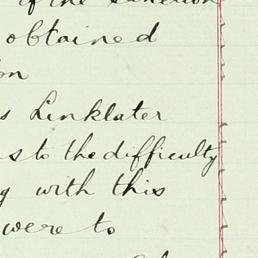 of the
obtained
on
s Linklater
s to the difficulty
g with this
were to